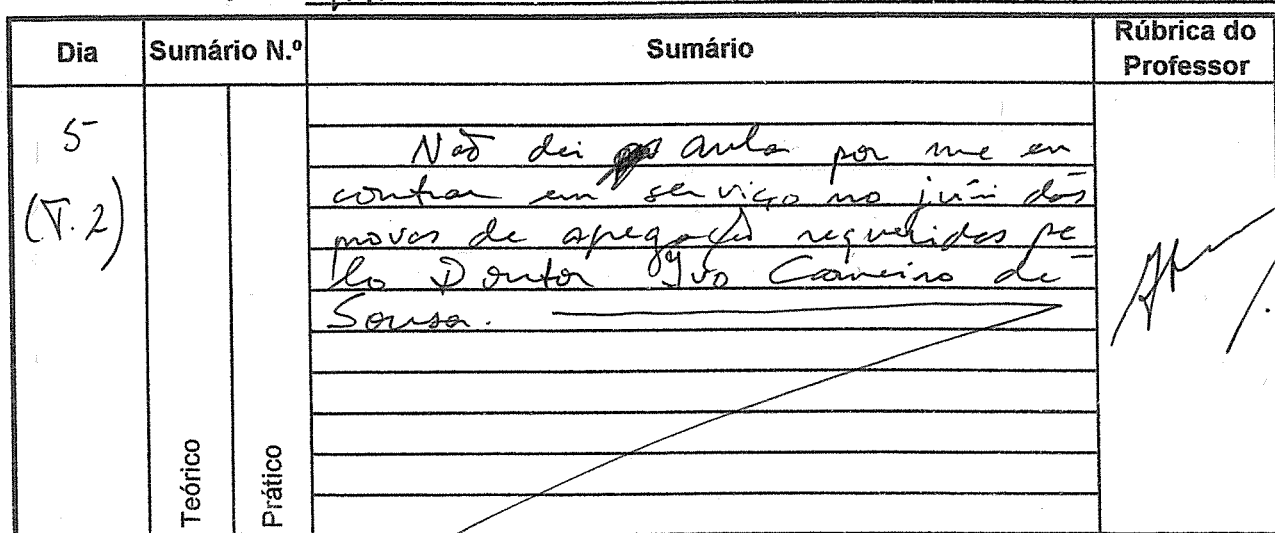 Dia Sumário N.º Sumário Rúbrica do Professor
5
(T.2)
Teórico Prático
Não dei aula por me en
contrar em serviço no júri das
provas de agregação requeridas pe
lo Doutor Ivo Carneiro de
Sousa.